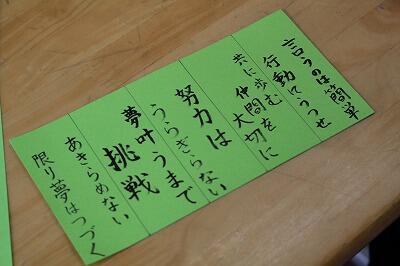 言うのは簡単
行動にうつせ
共に歩む
仲間を
大切に
努力は
うらぎらない
夢叶うまで
挑戦
あきらめない
限り夢はつづく